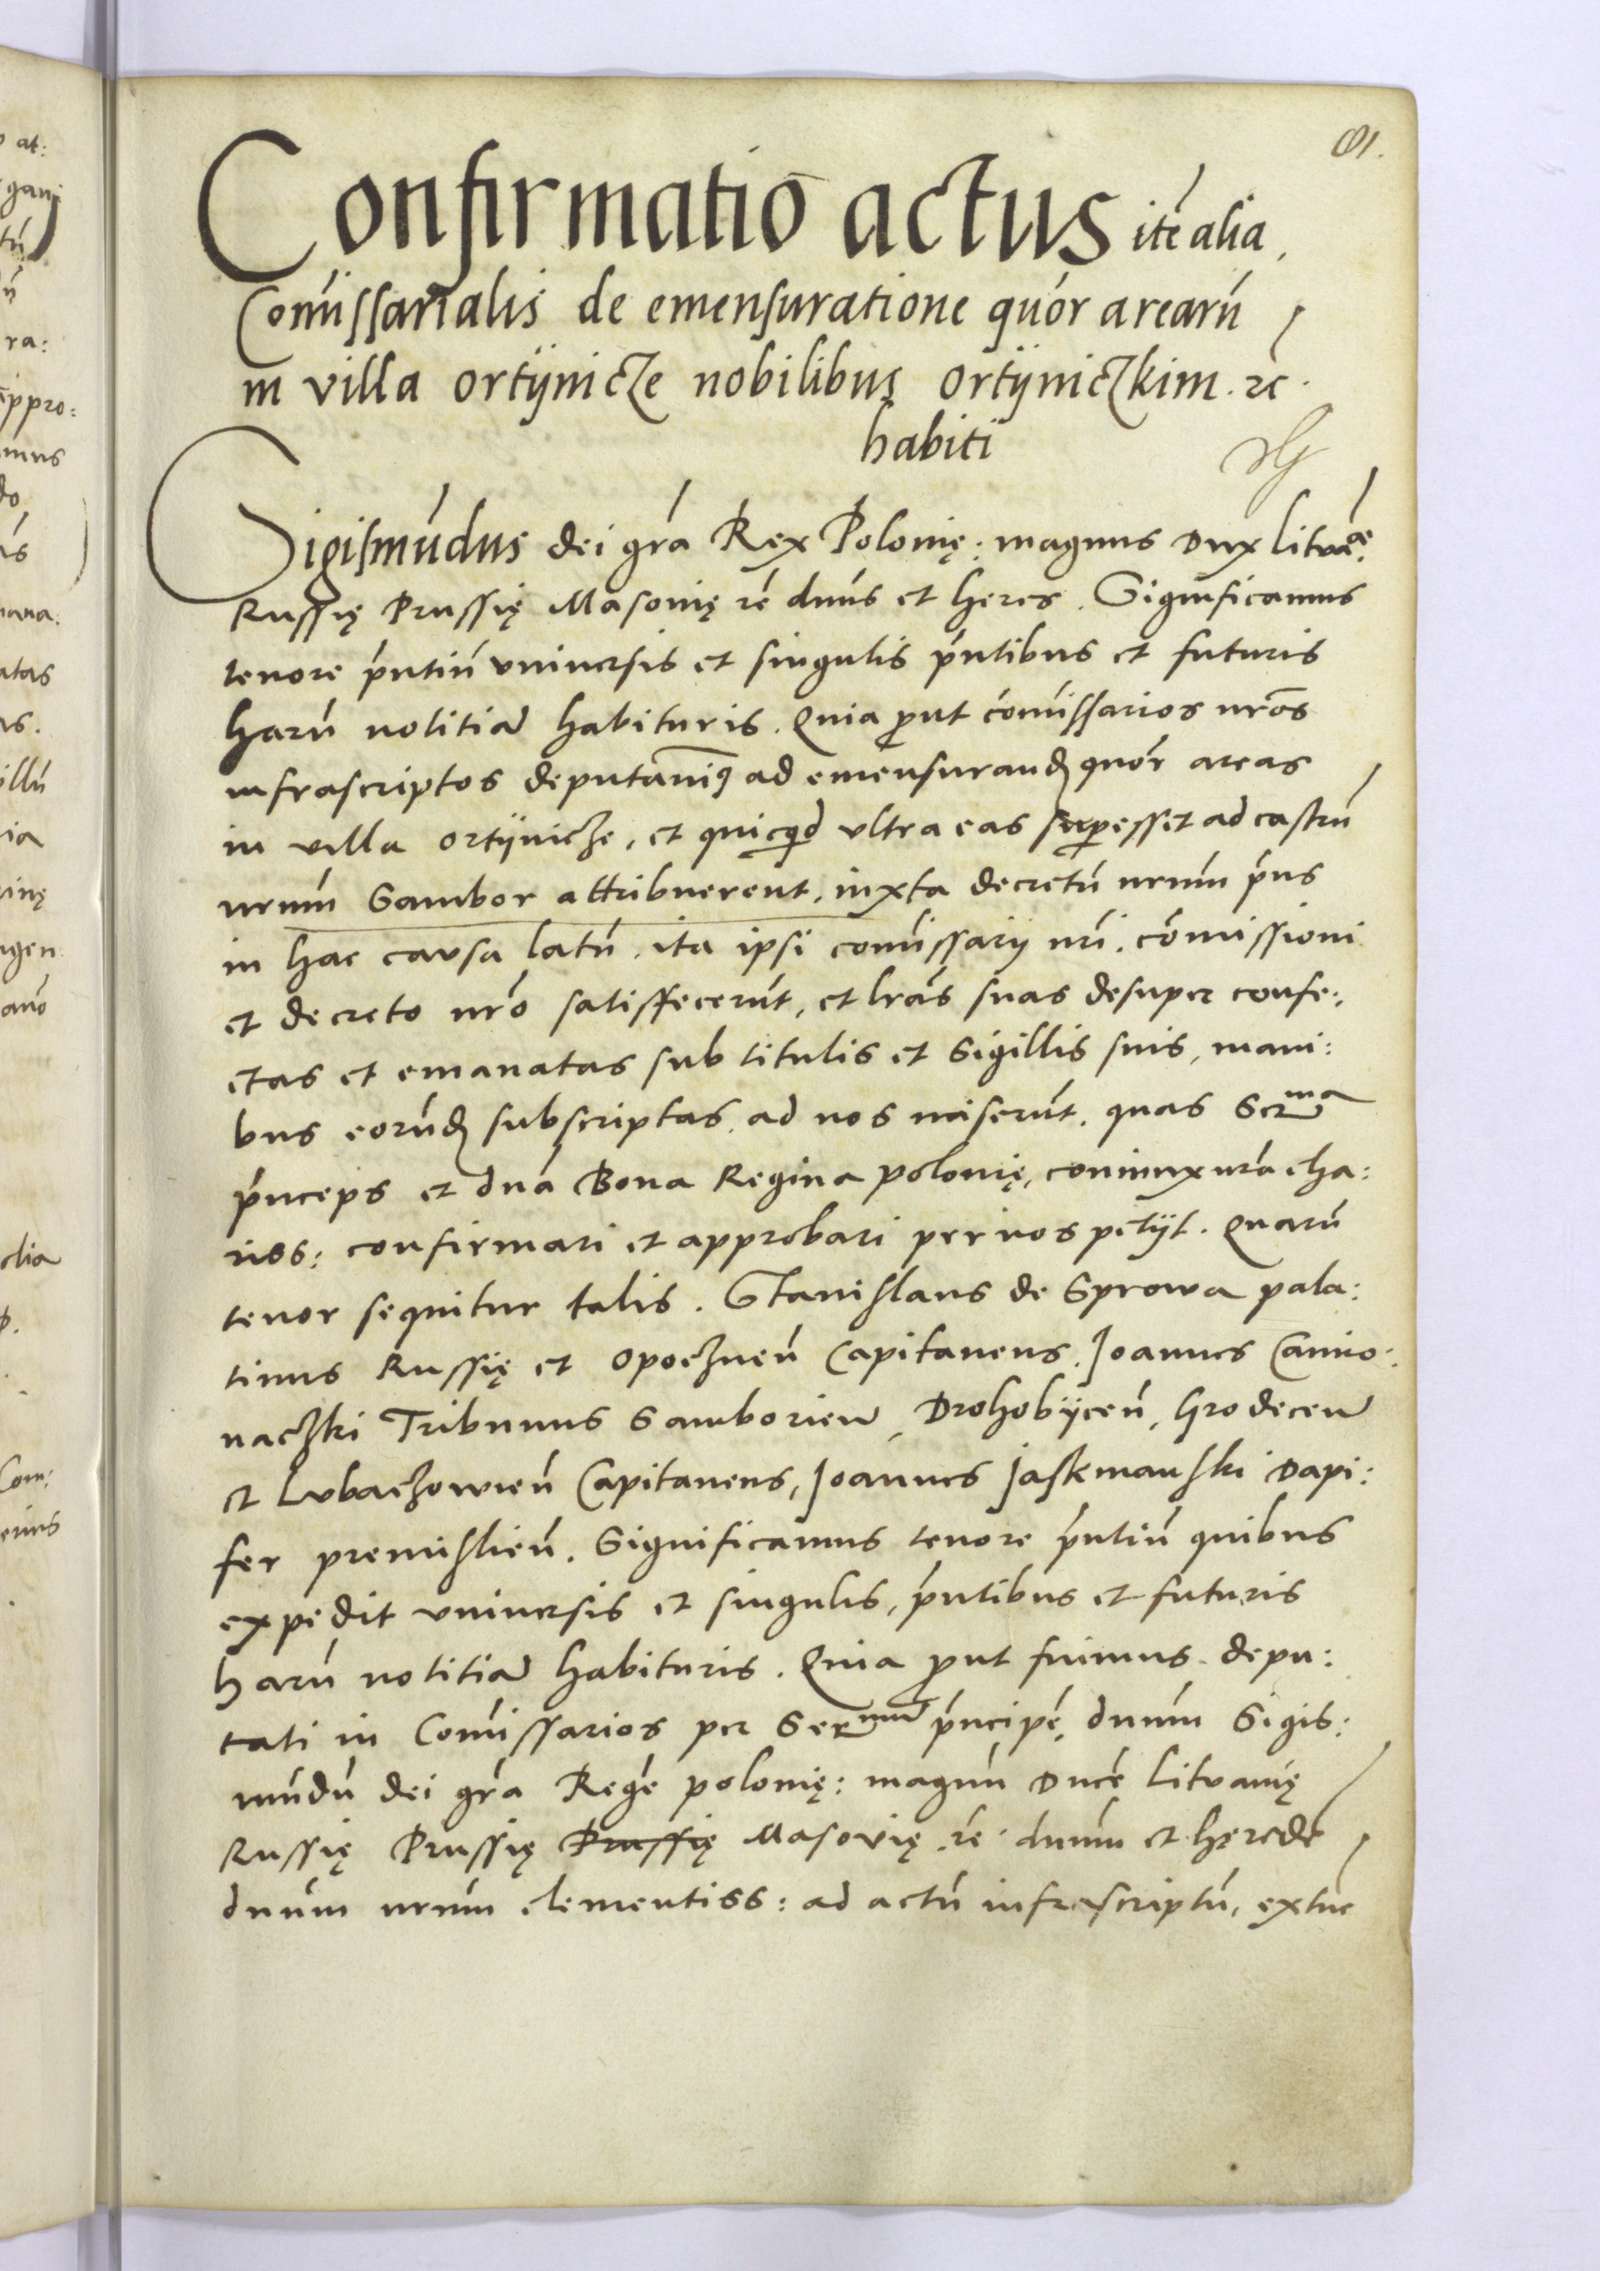 Confirmatio actus itē alia
Com̄issarialis de emensuratione quōr arearū
in villa ortÿnicze nobilibus ortÿniczkim. ꝛc
habiti
Sigismūdus dei grā Rex Polonię: magnus Dux litvāę
Russię Prussię Masovię ꝛc dnūs et heres. Significamus
tenore pn̄tiū vniversis et singulis pn̄tibus et futuris
harū notitiā habituris. Quia ꝓut com̄issarios nrōs
infrascriptos deputavimꝰ ad emensurandꝭ quōr areas
in villa ortÿnicze, et quicqͥd vltra eas suꝑesset ad castrū
nrum̄ Sambor attribuerent, iuxta decretū nrum̄ priꝰs
in hac causa latū. ita ipsi com̄issarij nrī. com̄issioni
et decreto nrō satisffecerūt, et lrās suas desuper confe:
ctas et emanatas sub titulis et Sigillis suis, mani:
bus eorūdꝭ subscriptas ad nos miserūt. quas Serᵐᵃ
prīnceps et dnā Bona Regina polonię, coniunx nrā cha:
riss: confirmari et approbari per nos petijt. Quarū
tenor sequitur talis. Stanislaus de Sprowa pala:
tinus Russię et opoczneñ Capitaneus, Joannes Camio:
naczki Tribunus Samborieñ, Drohobÿceñ, hrodeceñ
et Lvbaczowieñ Capitaneus, Joannes Jaskmanski Dapi:
fer premislieñ. Significamus tenore pn̄tiū quibus
expedit vniversis et singulis, pn̄tibus et futuris
harū notitiā habituris. Quia ꝓut fuimus depu:
tati in Com̄issarios per Serᵐᵘᵐ prīncipē, dnum̄ Sigis:
mūdū dei grā Regē polonię: magnū Ducē litvanię
Russię Prussię Prussię Masovię ꝛc dnum̄ et hęredē
dnum̄ nrum̄ clementiss: ad actū infrascriptū, extūc